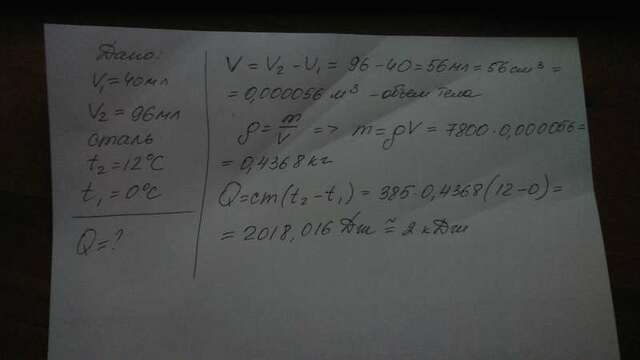 Дано:
V₁ = 40мл
V₂ = 96мл
сталь
t₂ = 12°C
t₁ = 0°C
Q = ?
V = V₂ - U₁ = 96 - 40 = 56мл = 56 cm³ =
= 0,000056 м³ - объем тела
ρ = m/V => m = ρV = 7800 · 0,000056 =
= 0,4368 кг
Q = cm(t₂ - t₁) = 385 · 0,4368 (12 - 0) =
= 2018,016 Дж ≈ 2 кДж